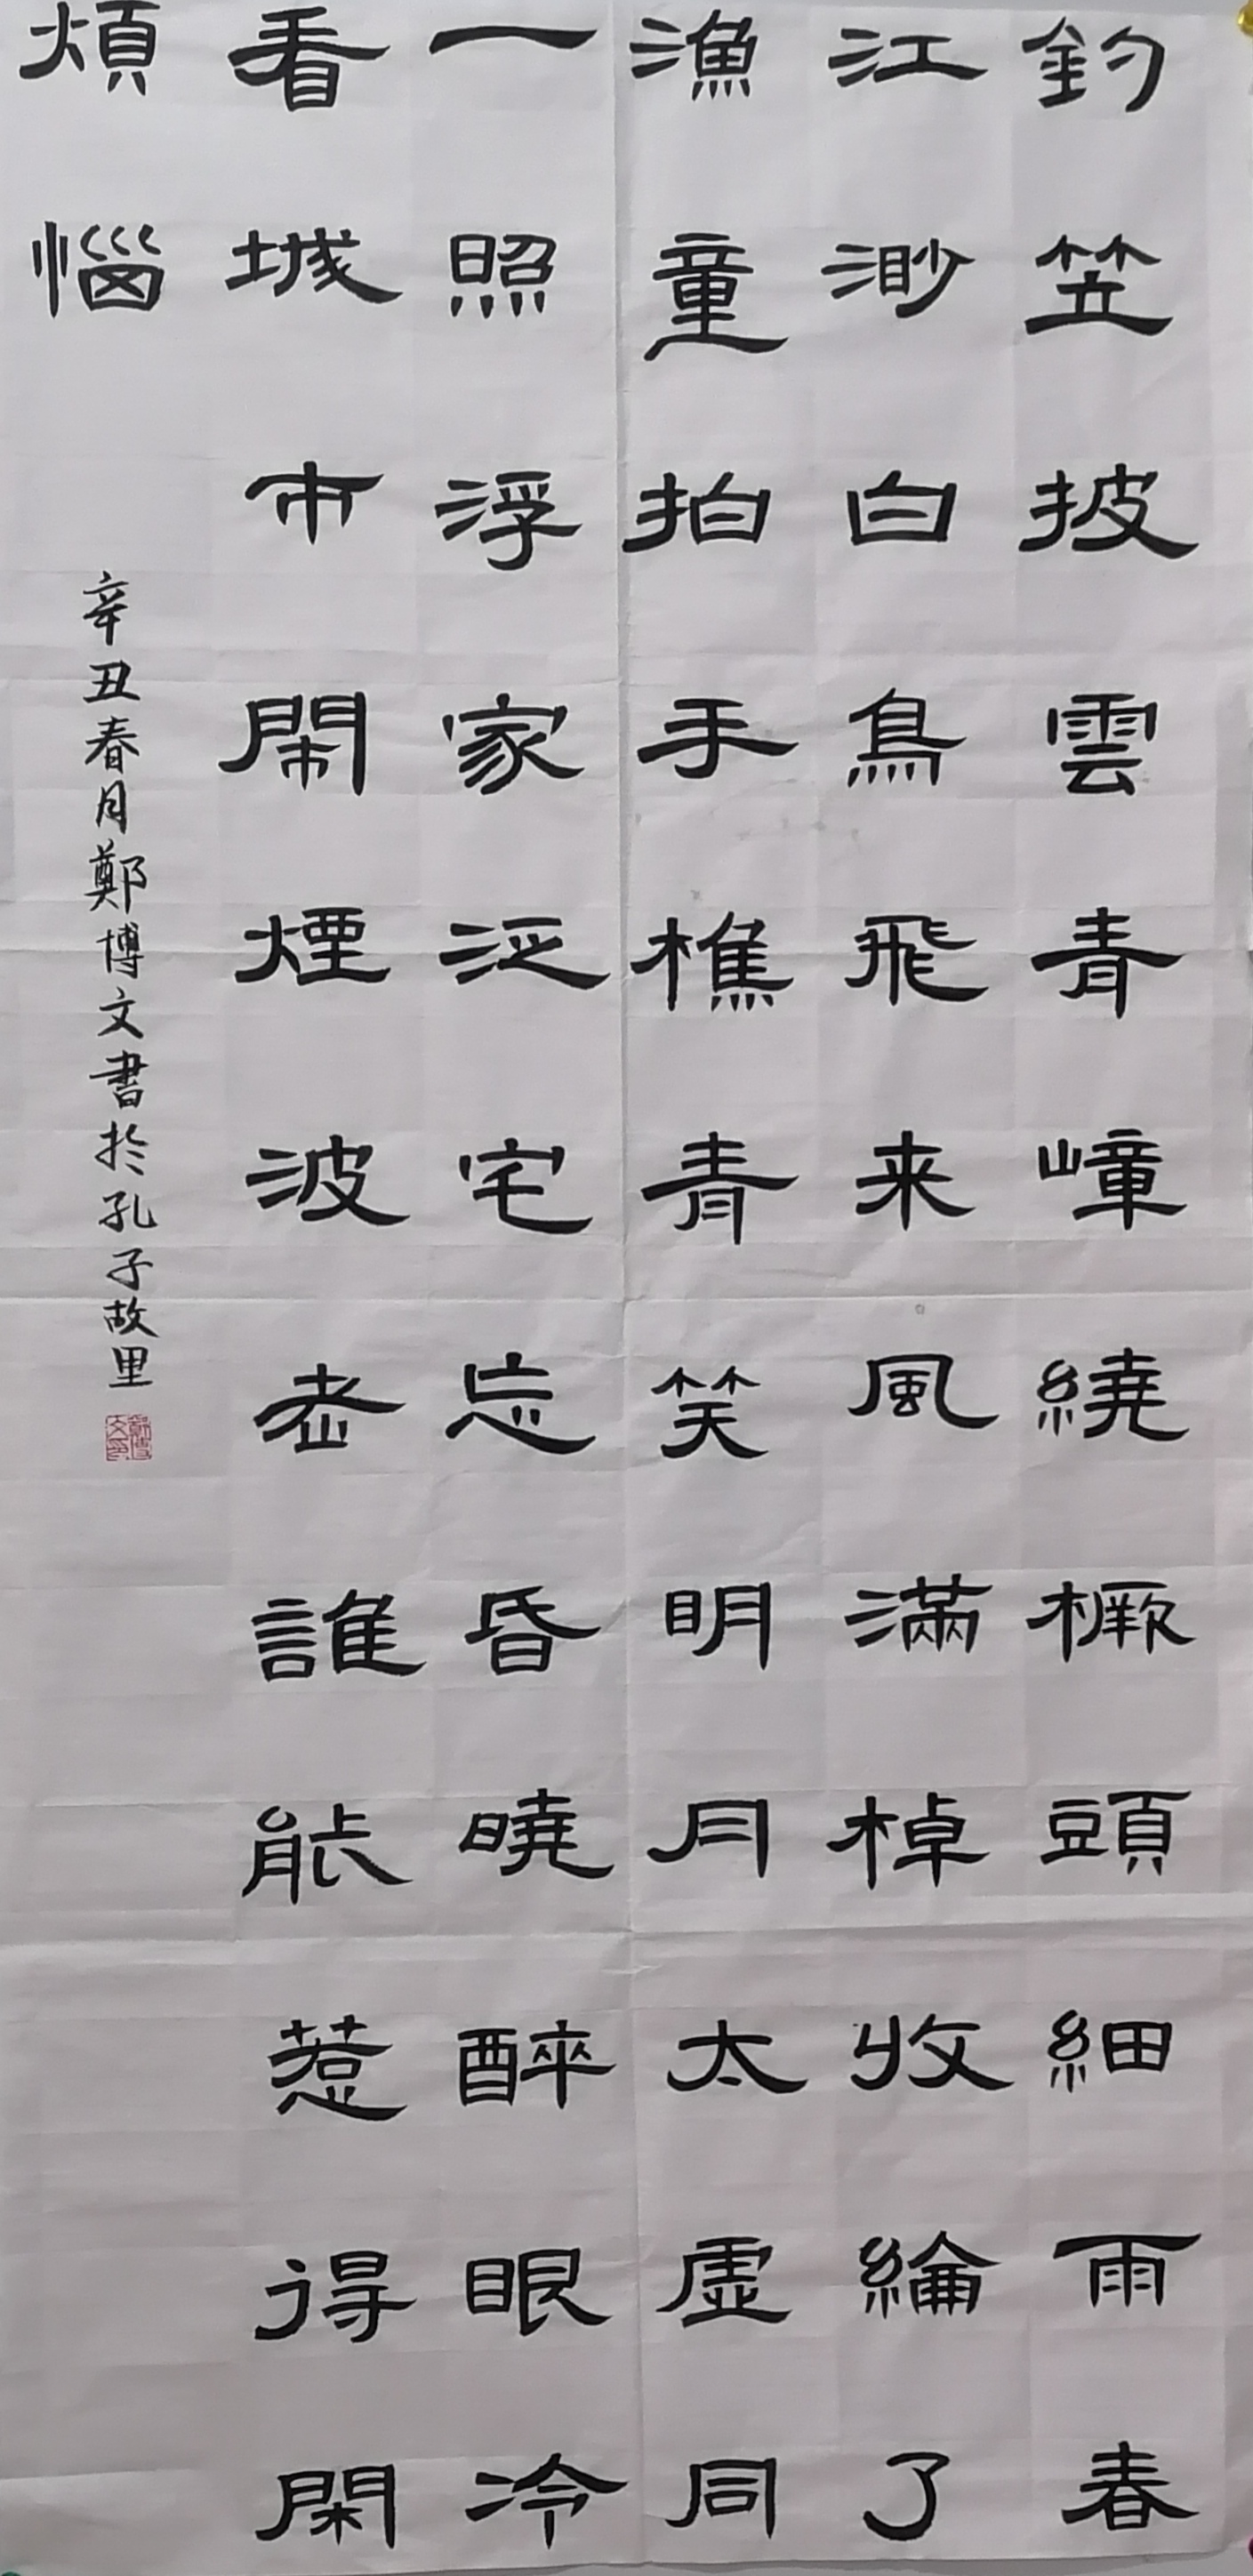 釣笠披雲青嶂繞橛頭細雨春
江渺白鳥飛来風滿棹收綸了
漁童拍手樵青笑明月太虛同
一照浮家泛宅忘昏曉醉眼冷
看城市閙煙波老誰能惹得閑
煩惱
辛丑春月鄭博文書於孔子故里
鄭博文印